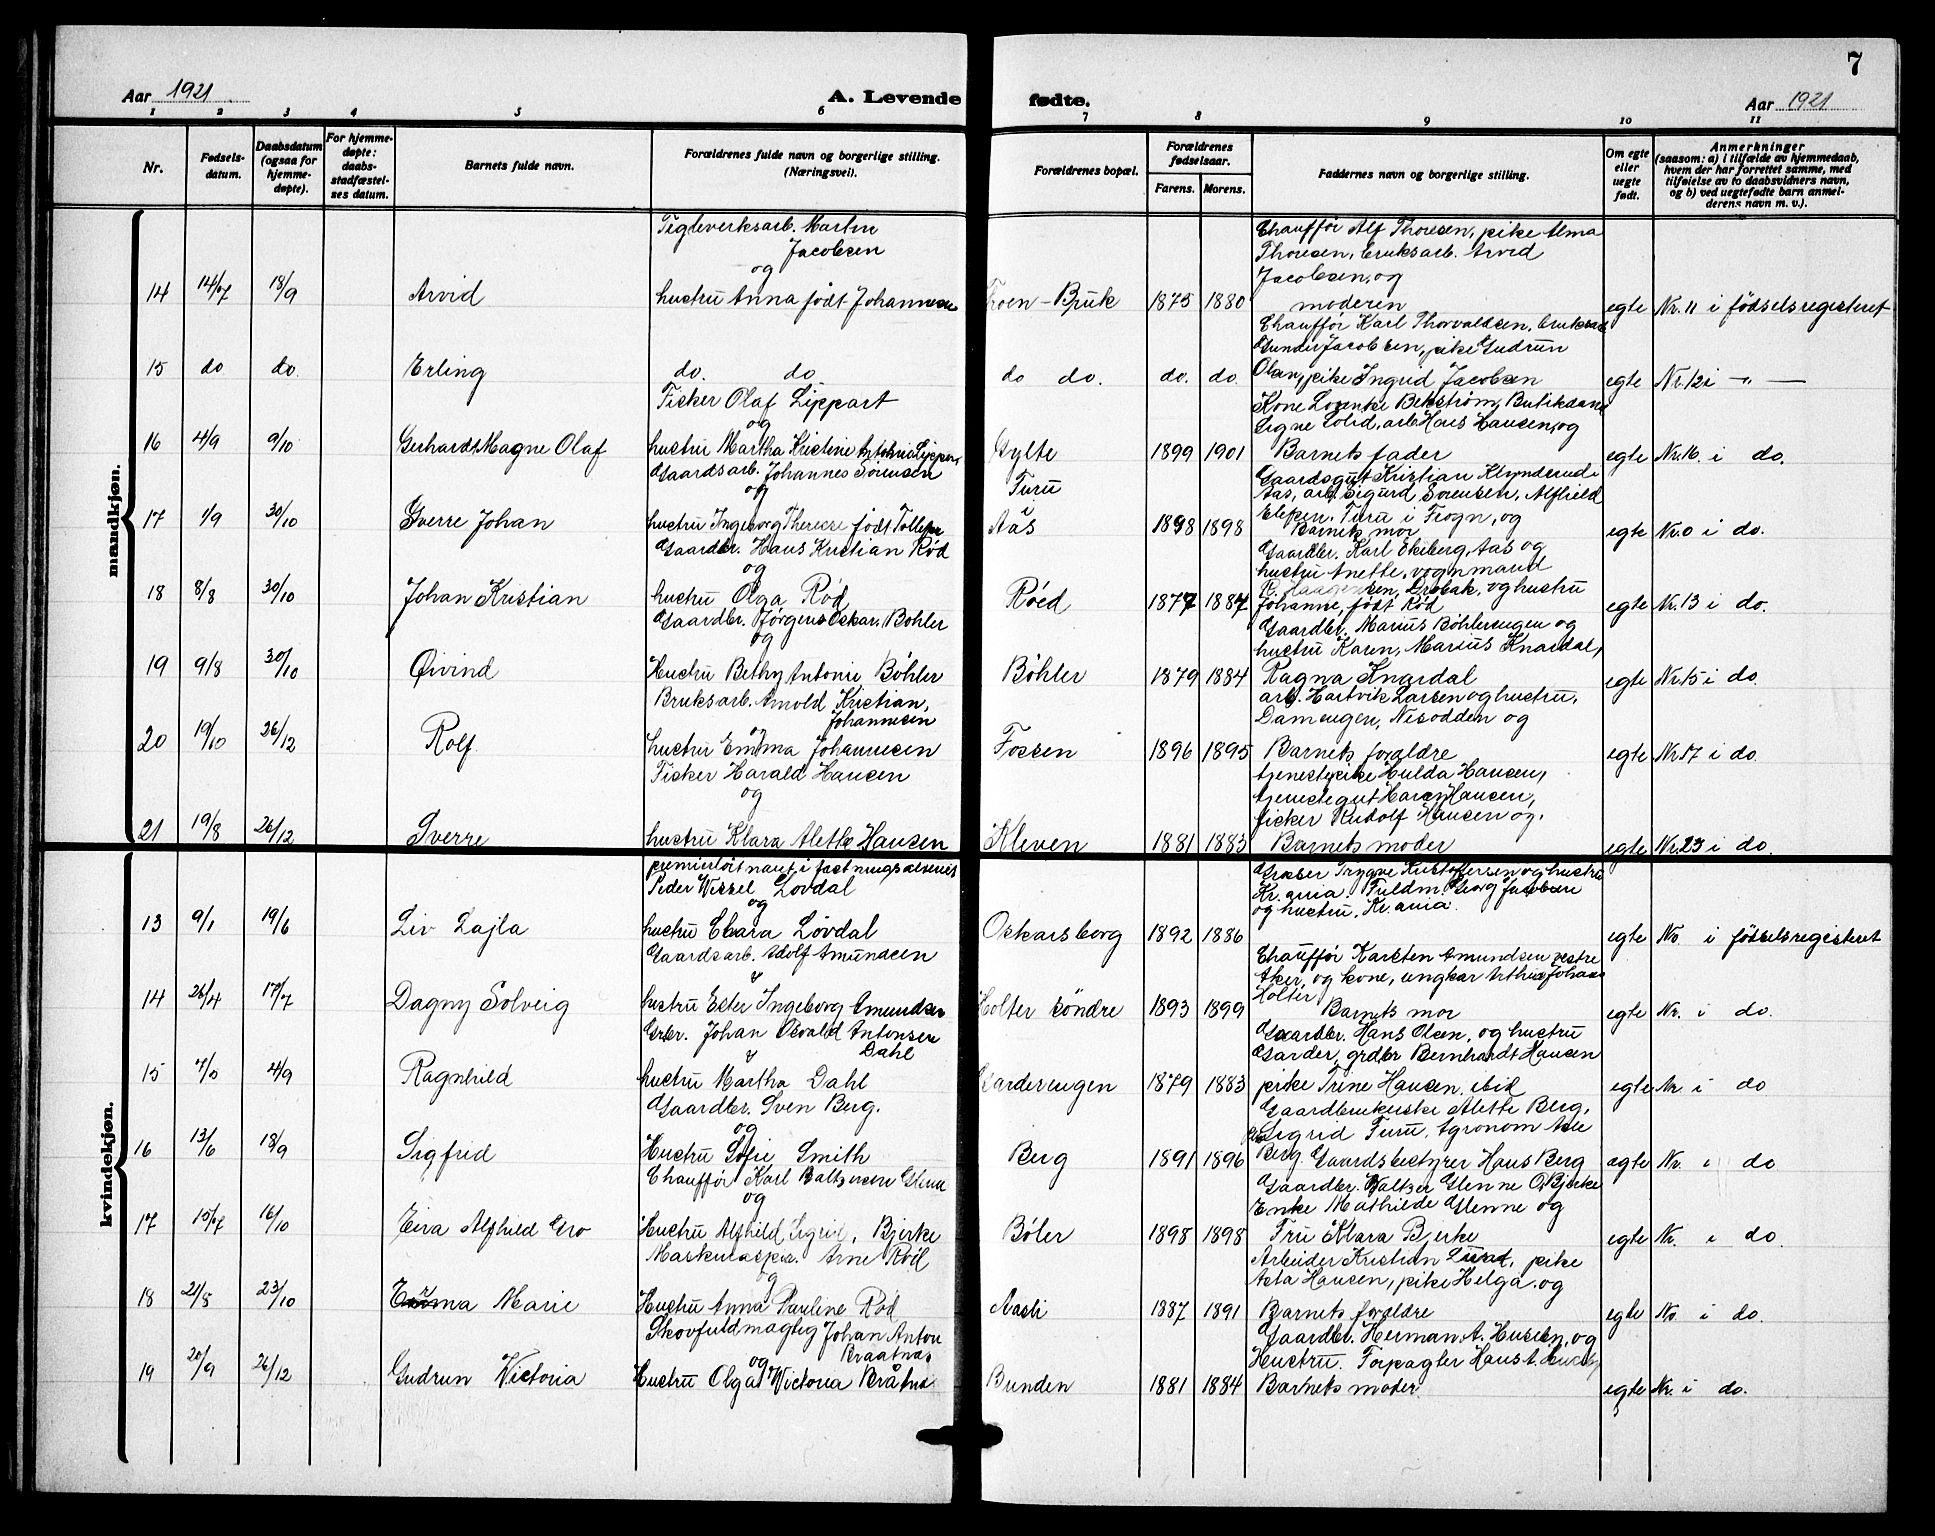 7
Aar 1921
A. Levende fødte.
Aar 1921
1 2 3 4 5 6 7 8 9 10 11
Nr.
Fødsels-
datum.
Daabsdatum
(ogsaa for
hjemme-
døpte).
For hjemme-
døpte:
daabs-
stadfæstel-
ses datum.
Barnets fulde navn.
Forældrenes fulde navn og borgerlige stilling.
(Næringsvei).
Forældrenes bopæl.
Forældrenes
fødselsaar.
Farens. Morens.
Faddernes navn og borgerlige stilling.
Om egte
eller
uegte
født.
Anmerkninger
(saasom: a) i tilfælde av hjemmedaab,
hvem der har forrettet samme, med
tilføielse av to daabsvidners navn,
og b) ved uegtefødte barn anmel-
derens navn m. v.).
mandkjøn.
Tegleverksarb. Martin
Jacobsen
og
14 14/7 18/9 Arvid hustru Anna født Johannesen
Bruk 1875 1880
Chauffør Alf Thoresen, pike Alma
Thoresen, bruksarb. Arvid
Jacobsen, og
moderen
egte Nr. 11 i fødselsregisteret
15 do do. Erling do. do do do. do. do
Chauffør Karl Thorvaldsen, bruksarb
Gunder Jacobsen, pike Gudrun
Olsen, pike Ingrid Jacobsen
egte Nr. 12 i — " —
Fisker Olaf Lippart
og
16 4/9 9/10 Gerhardt Magne Olaf hustru Martha Kristine
Gylte 1899 1901
Kone
Signe Solid, arb Hans Hansen, og
Barnets fader
egte Nr. 16. i do.
Gaardsarb. Johannes Sörensen
og
17 1/9 30/10 Sverre Johan hustru Ingeborg Therese født
Turu
i
Aas 1898 1898
Gaardsgut Kristian
Aas, arb. Sigurd Sörensen, Alfhild
Turu i Frogn, og
Barnets mor
egte Nr. 0 i do.
Gaardbr. Hans Kristian Rød
og
18 8/8 30/10 Johan Kristian hustru Olga Rød
Röed 1877 1887
Gaardbr. Karl Ekeberg, Aas og
hustru Anette, vognmand
Drøbak, og hustru
Johanne, født Rød
egte Nr. 13 i do.
Gaardbr. Jørgens Oskar. Böhler
og
19 9/8 30/10 Øivind Hustru Bethy Antonie Böhler
Böhler 1879 1884
Gaardbr. Marius Böhlerengen og
hustru Karen, Marius Knardal,
Ragna Knardal
egte Nr. 15 i do
Bruksarb. Arnold Kristian,
Johannesen
20 19/10 26/12 Rolf hustru Emma Johannesen
Fossen 1896 1895
arb. Hartvik Larsen og hustru,
Damengen, Nesodden og
Barnets forældre
egte Nr. 17 i do.
Fisker Harald Hansen
og
21 19/8 26/12 Sverre hustru Klara Alette Hansen
Kleven 1881 1883
tjenestepike Hulda Hansen,
tjenestegut Harry Hansen,
fisker Rudolf Hansen og.
Barnets moder
egte Nr. 23 i do.
kvindekjøn.
Peder Wessel Lövdal
og
13 9/1 19/6 Liv Lajla hustru Clara Lövdal
Oskarsborg 1892 1886
Græser Trygve Kristoffersen og hustru
Kr.ania. Fuldm. Georg Jacobsen
og hustru, Kr.ania.
egte No i fødselsregisteret
Gaardsarb. Adolf Amundsen
14 26/4 17/7 Dagny Solveig hustru Ester Ingeborg Amundsen
Holter söndre 1893 1899
Chauffør Karsten Amundsen vestre
Aker, og kone, ungkar
Holter
Barnets mor
egte Nr. i do.
Johan Osvald Antonsen
Dahl
15 4/9 Ragnhild hustru Martha Dahl
Garderengen 1879 1883
Gaardbr. Hans Olsen, og hustru
Garder, grdbr Bernhardt Hansen
pike Trine Hansen ibid
egte Nr. i do
Gaardbr. Sven Berg.
og
16 13/6 18/9 Sigfrid Hustru Sofie Smith
Berg 1891 1896
Alette Berg,
Sigrid Turu, Agronom
Berg Gaardsbestyrer Hans Berg
ægte Nr. i do
Chauffør Karl Baltzersen Glenne
og
17 15/7 16/10 Eira Alfhild Gro Hustru Alfhild Sigrid, Bjerke
Böler 1898 1898
Gaardbr. Baltzer Glenne O, Bjerke
Enke Mathilde Glenne og
Fru Klara Bjerke
egte Nr. i do.
Arne Röd
og
18 21/8 23/10 Marie Hustru Anna Pauline Röd
Aasli 1887 1891
Arbeider Kristian pike
Asta Hansen, pike Helga. og
Barnets forældre
egte No i do.
Skovfuldmægtig Johan Anton
Braatnas
og
19 20/9 26/12 Gudrun Victoria Hustru Olga Victoria
Bunden 1881 1884
Gaardbr. Herman A. Huseby, og
Hustru. Forpagter Hans A.
Barnets moder
egte Nr. i do.